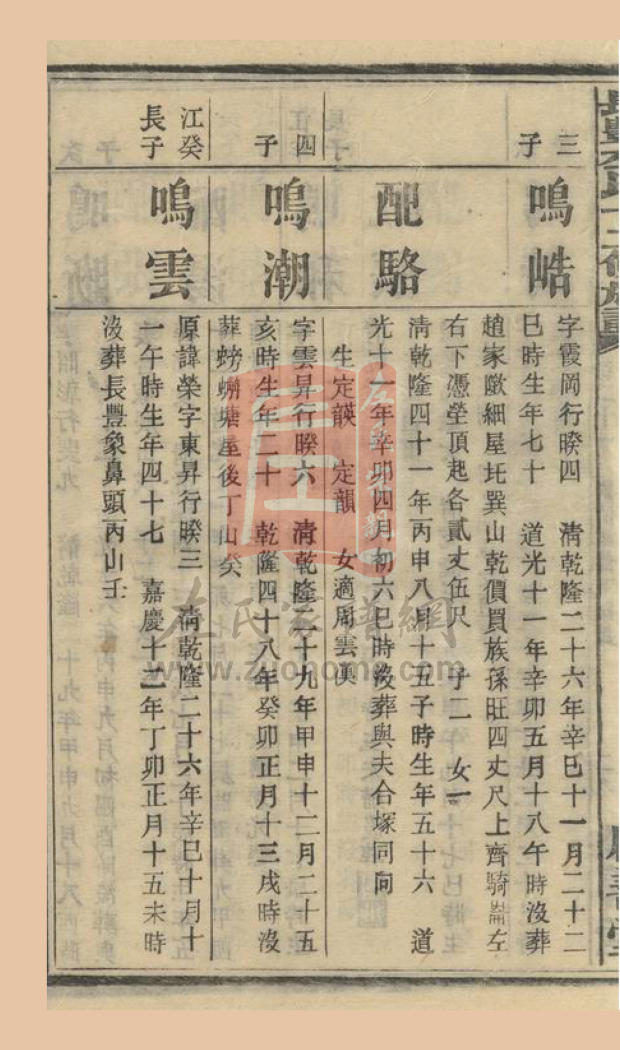 三子
鳴皓
字霞岡行暌四 清乾隆二十六年辛巳十一月二十二
巳時生年七十 道光十一年辛卯五月十八午時沒葬
趙家歐細屋圫巽山乾價買族孫旺四丈尺上齊騎崙左
右下憑塋頂起各貳丈伍尺 子二 女一
配駱
清乾隆四十一年丙申八月十五子時生年五十六 道
光十一年辛卯四月初六巳時沒葬與夫合塚同向
生定韺 定韻 女適周雲
四子
鳴潮
字雲昇行暌六 清乾隆二十九年甲申十二月二十五
亥時生年二十 乾隆四十八年癸卯正月十三戌時沒
葬螃蠏塘屋後丁山癸
江癸長子
鳴雲
原諱榮字東昇行暌三 清乾隆二十六年辛巳十月十
一午時生年四十七 嘉慶十二年丁卯正月十五未時
沒葬長豐象鼻頭丙山壬
左氏家譜網
www.zuohome.com